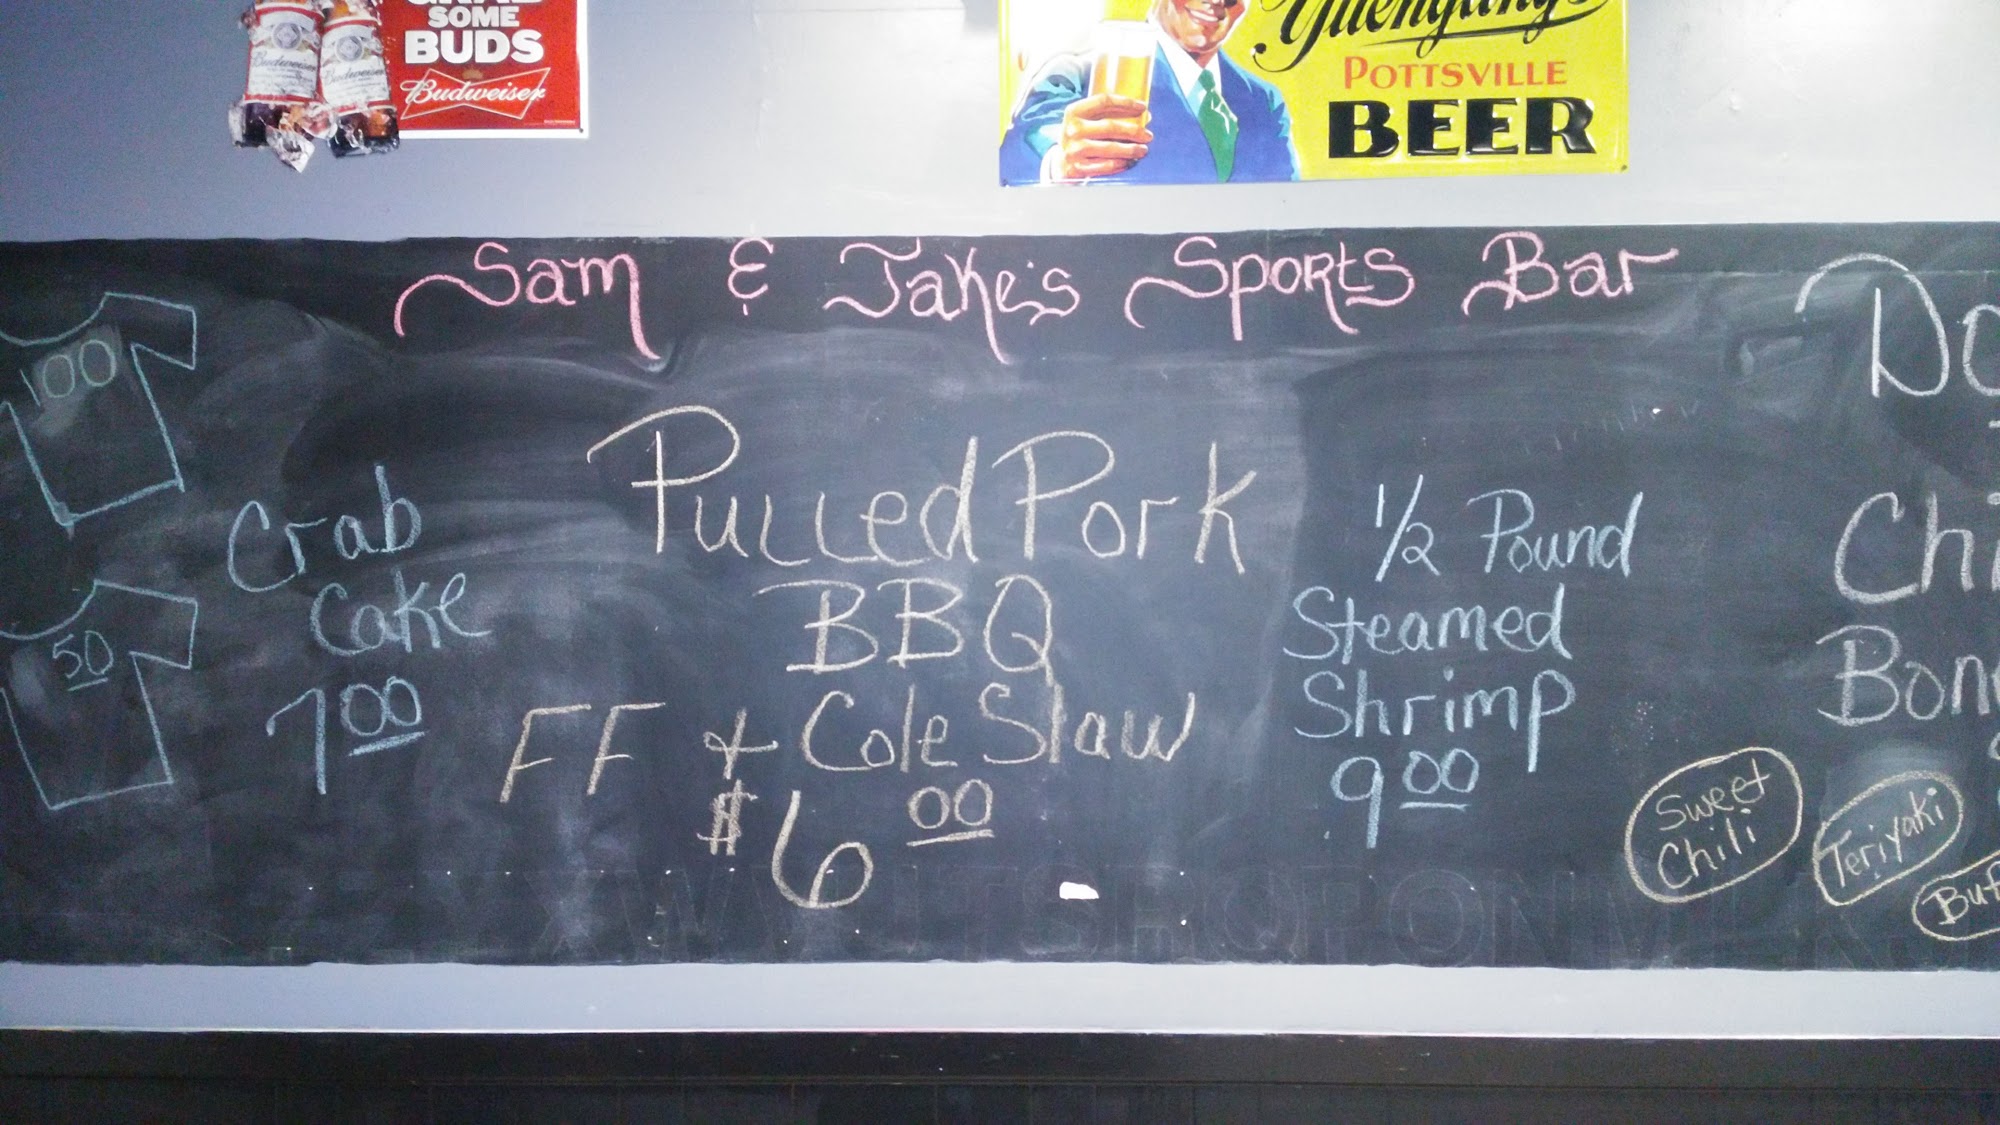 SOME
BUDS
Budweiser
Budweiser
Budweiser
Yuengling's
POTTSVILLE
BEER
Sam & Jake's Sports Bar
100
50
Crab
Cake
7 00
Pulled Pork
BBQ
FF + Cole Slaw
$6 00
1/2 Pound
Steamed
Shrimp
9 00
Do
Chi
Bon
Sweet
Chili
Teriyaki
Buf